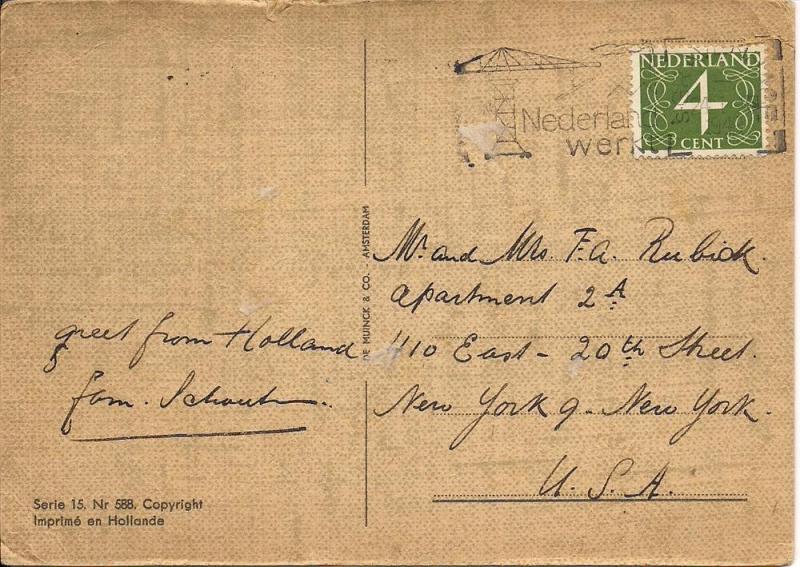 NEDERLAND
4
CENT
Nederland
werkt
DE MUINCK & CO. AMSTERDAM
greet from Holland
fam. Schouten.
Mr and Mrs F.A. Rubick.
apartment 2A
410 East - 20th Street.
New York 9 - New York.
U.S.A.
Serie 15, Nr 588, Copyright
Imprimé en Hollande